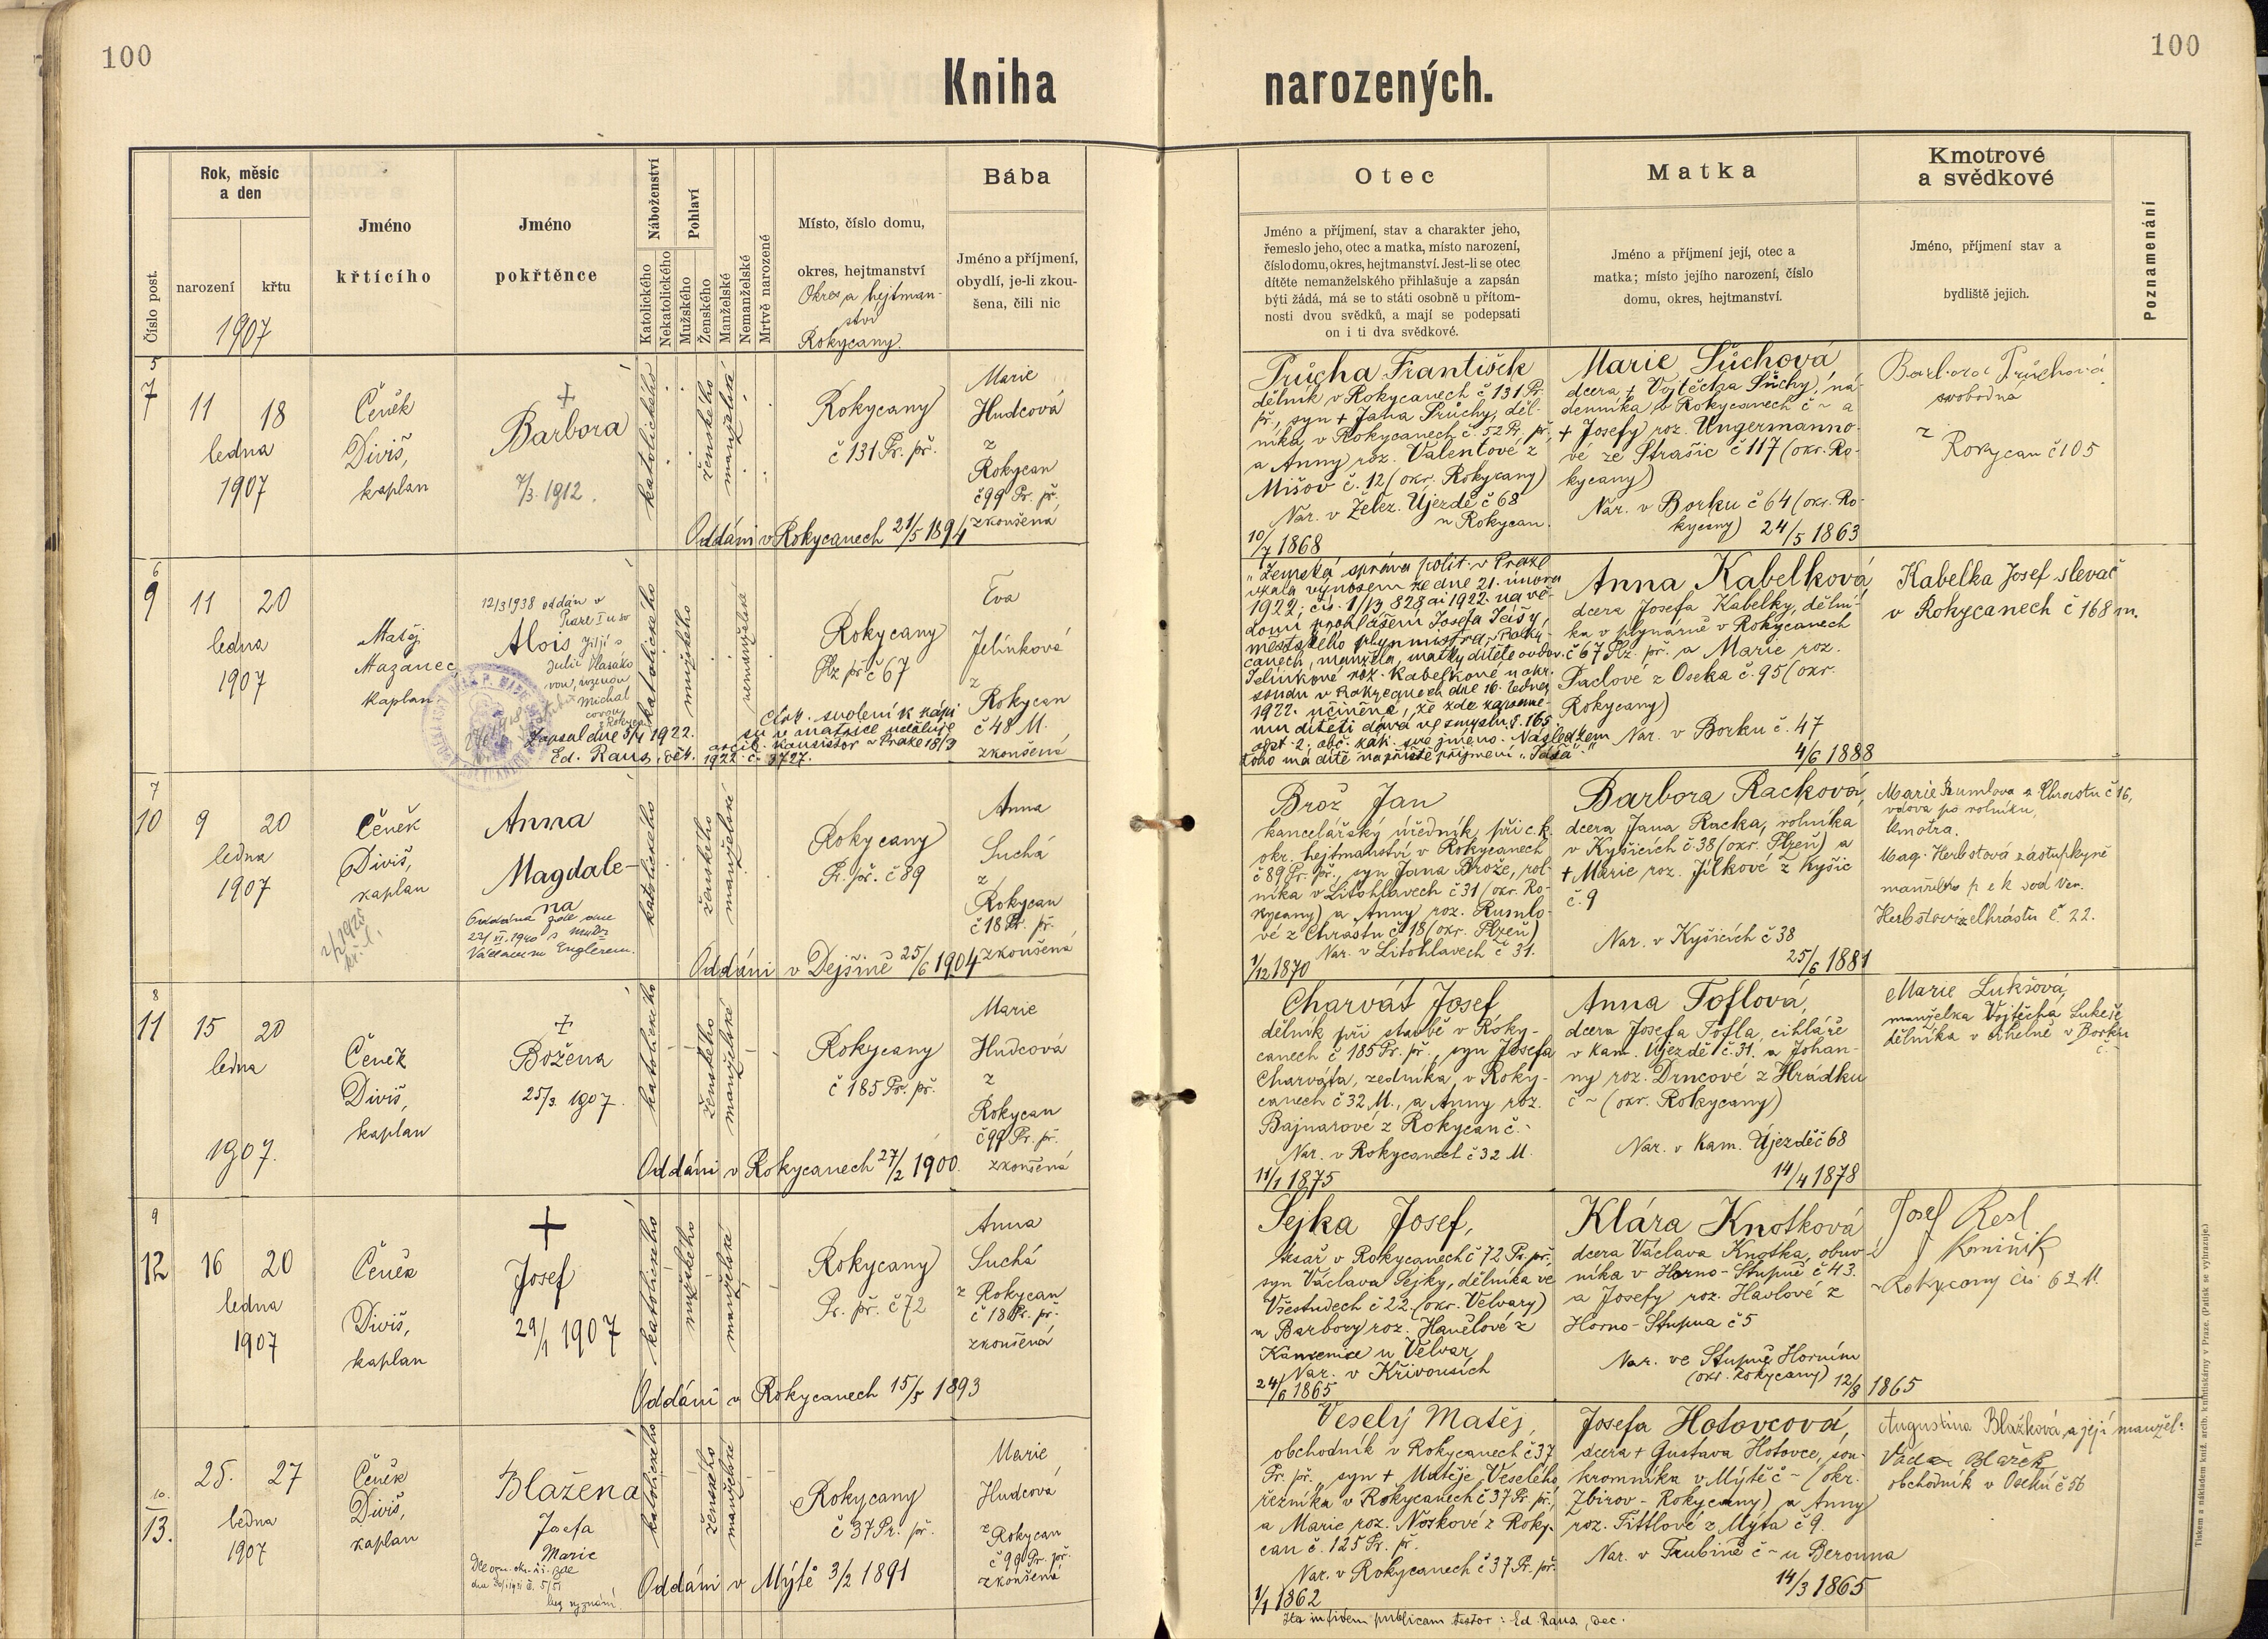 100
100
Kniha
narozených.
Číslo post.
Rok, měsíc
a den
narození
křtu
1907
Jméno
křtícího
Jméno
pokřtěnce
Náboženství
Katolického
Nekatolického
Pohlaví
Mužského
Ženského
Manželské
Nemanželské
Mrtvě narozené
Místo, číslo domu,
okres, hejtmanství
Okres a hejtman-
ství
Rokycany.
Bába
Jméno a příjmení,
obydlí, je-li zkou-
šena, čili nic
Otec
Jméno a příjmení, stav a charakter jeho,
řemeslo jeho, otec a matka, místo narození,
číslo domu, okres, hejtmanství. Jest-li se otec
dítěte nemanželského přihlašuje a zapsán
býti žádá, má se to státi osobně u přítom-
nosti dvou svědků, a mají se podepsati
on i ti dva svědkové.
Matka
Jméno a příjmení její, otec a
matka; místo jejího narození, číslo
domu, okres, hejtmanství.
Kmotrové
a svědkové
Jméno, příjmení stav a
bydliště jejich.
Poznamenání
5
7
11
18
ledna
1907
Čeněk
Diviš,
kaplan
+
Barbora
7/3. 1912.
katolického
ženského
manželské
Rokycany
č 131 Pr. př.
Marie
Hudcová
z
Rokycan
č 99 Pr. př.
zkoušená
Oddáni v Rokycanech 21/5 1894
Průcha František
dělník v Rokycanech č 131 Pr.
př., syn + Jana Průchy, děl-
níka v Rokycanech č. 52 Pr. př.,
a Anny roz. Valentové z
Mišov č. 12 (okr. Rokycany)
Nar. v Želez. Újezdě č 68
u Rokycan.
10/7 1868
Marie Suchová
dcera + Vojtěcha Suchy, ná-
denníka v Rokycanech č ~ a
+ Josefy roz. Ungermanno-
vé ze Strašic č 117 (okr. Ro-
kycany)
Nar. v Borku č 64 (okr. Ro-
kycany) 24/5 1863
Barbora Průchová
svobodná
z
Rokycan č 105
6
9
11
20
ledna
1907
Matěj
Mazanec
kaplan
12/3 1938 oddán v
Praze I u sv
Alois Jiljí s
Julií Vlasáko
vou, rozenou
Michal
covou
Zapsal dne 5/4 1922.
Ed. Raus, děk.
katolického
mužského
nemanželské
Rokycany
Plz př č 67
Eva
Jelínková
z
Rokycan
č 48 M.
zkoušená
ctih. svolení k zápi
su v matrice udělila
arcib. konsistoř v Praze 18/3
1922 č. 3727.
"Zemská správa polit. v Praze
vzala výnosem ze dne 21. února
1922, čís. 1/13 828 ai 1922 na vě-
domí prohlášení Josefa Jáši,
městského plynmistra v Roky-
canech, manžela matky dítěte ovdov.
Jelínkové roz. Kabelkové u okr.
soudu v Rokycanech dne 16. ledna
1922 učiněné, že zde zapsané-
mu dítěti dává ve smyslu § 165
odst. 2. obč. zák. své jméno. Následkem
toho má dítě napříště příjmení "Jáša".
Anna Kabelková
dcera Josefa Kabelky, dělní-
ka v plynárně v Rokycanech
č 67 Plz. př. a Marie roz.
Paclové z Oseka č. 95 (okr.
Rokycany)
Nar. v Borku č. 47
4/6 1888
Kabelka Josef slevač
v Rokycanech č 168 m.
7
10
9
20
ledna
1907
Čeněk
Diviš,
kaplan
2/2 1925
kř. l.
Anna
Magdale-
na
Oddána zde dne
23/VI. 1940 s MUDr
Václavem Englerem.
katolického
ženského
manželské
Rokycany
Pr. př. č 89
Anna
Suchá
z
Rokycan
č 18 Pr. př.
zkoušená
Oddáni v Dejšině 25/6 1904
Brož Jan
kancelářský úředník při c. k.
okr. hejtmanství v Rokycanech
č 89 Pr. př., syn Jana Brože, rol-
níka v Litohlavech č 31 (okr. Ro-
kycany) a Anny roz. Rumlo-
vé z Chrástu č 18 (okr. Plzeň)
Nar. v Litohlavech č 31.
1/12 1870
Barbora Racková,
dcera Jana Racka, rolníka
v Kyšicích č. 38 (okr. Plzeň) a
+ Marie roz. Jílkové z Kyšic
č. 9
Nar. v Kyšicích č 38
25/6 1881
Marie Rumlova z Chrástu č 16,
vdova po rolníku,
kmotra.
Mag. Herbstová zástupkyně
Herbstovi z Chrástu č. 22.
8
11
15
20
ledna
1907.
Čeněk
Diviš,
kaplan
+
Božena
25/3. 1907.
katolického
ženského
manželské
Rokycany
č 185 Pr. př.
Marie
Hudcová
z
Rokycan
č 99 Pr. př.
zkoušená
Oddáni v Rokycanech 27/2 1900.
Charvát Josef
dělník při stavbě v Roky-
canech č 185 Pr. př., syn Josefa
Charváta, zedníka v Roky-
canech č 32 M., a Anny roz.
Bajnarové z Rokycan č. ~
Nar. v Rokycanech č 32 M.
11/1 1875
Anna Toflová,
dcera Josefa Tofla, cihláře
v Kam. Újezdě č. 31. a Johan-
ny roz. Drncové z Hrádku
č ~ (okr. Rokycany)
Nar. v Kam. Újezdě č 68
14/4 1878
Marie Lukšová,
manželka Vojtěcha Lukeše
dělníka v cihelně v Borku
č. ~
9
12
16
20
ledna
1907
Čeněk
Diviš,
kaplan
+
Josef
29/1 1907
katolického
mužského
manželské
Rokycany
Pr. př. č 72
Anna
Suchá
z Rokycan
č 18 Pr. př.
zkoušená
Oddáni v Rokycanech 15/5 1893
Sejka Josef,
tesař v Rokycanech č 72 Pr. př.,
syn Václava Sejky, dělníka ve
Všestudech č 22. (okr. Velvary)
a Barbory roz. Hanělové z
Kamenice u Velvar
Nar. v Křivousích
24/6 1865
Klára Knotková
dcera Václava Knotka, obuv-
níka v Horno-Stupně č 43.
a Josefy roz. Havlové z
Horno-Stupna č 5
Nar. ve Stupně Horním
(okr. Rokycany) 12/8 1865
Josef Resl
Kominík
Rokycany čis 62 M.
10
13.
25.
27
ledna
1907
Čeněk
Diviš,
kaplan
Blažena
Josefa
Marie
bez vyznání.
katolického
ženského
manželské
Rokycany
č 37 Pr. př.
Marie
Hudcová
z Rokycan
č 99 Pr. př.
zkoušená
Oddáni v Mýtě 3/2 1891
Veselý Matěj,
obchodník v Rokycanech č 37
Pr. př., syn + Matěje Veselého
řezníka v Rokycanech č 37 Pr. př.,
a Marie roz. Noskové z Roky-
can č. 125 Pr. př.
Nar. v Rokycanech č 37 Pr. př.
1/1 1862
Josefa Hotovcová,
dcera + Gustava Hotovce, sou-
kromníka v Mýtě č ~ (okr.
Zbirov - Rokycany) a Anny
roz. Tittlové z Mýta č 9.
Nar. v Trubíně č ~ u Berouna
14/3 1865
Augustina Blažková, a její manžel:
Václav Blažek
obchodník v Oseku č 56
Ita in fidem publicam testor: Ed. Raus, dec.
Tiskem a nákladem kníž. arcib. knihtiskárny v Praze. (Patisk se vyhrazuje.)